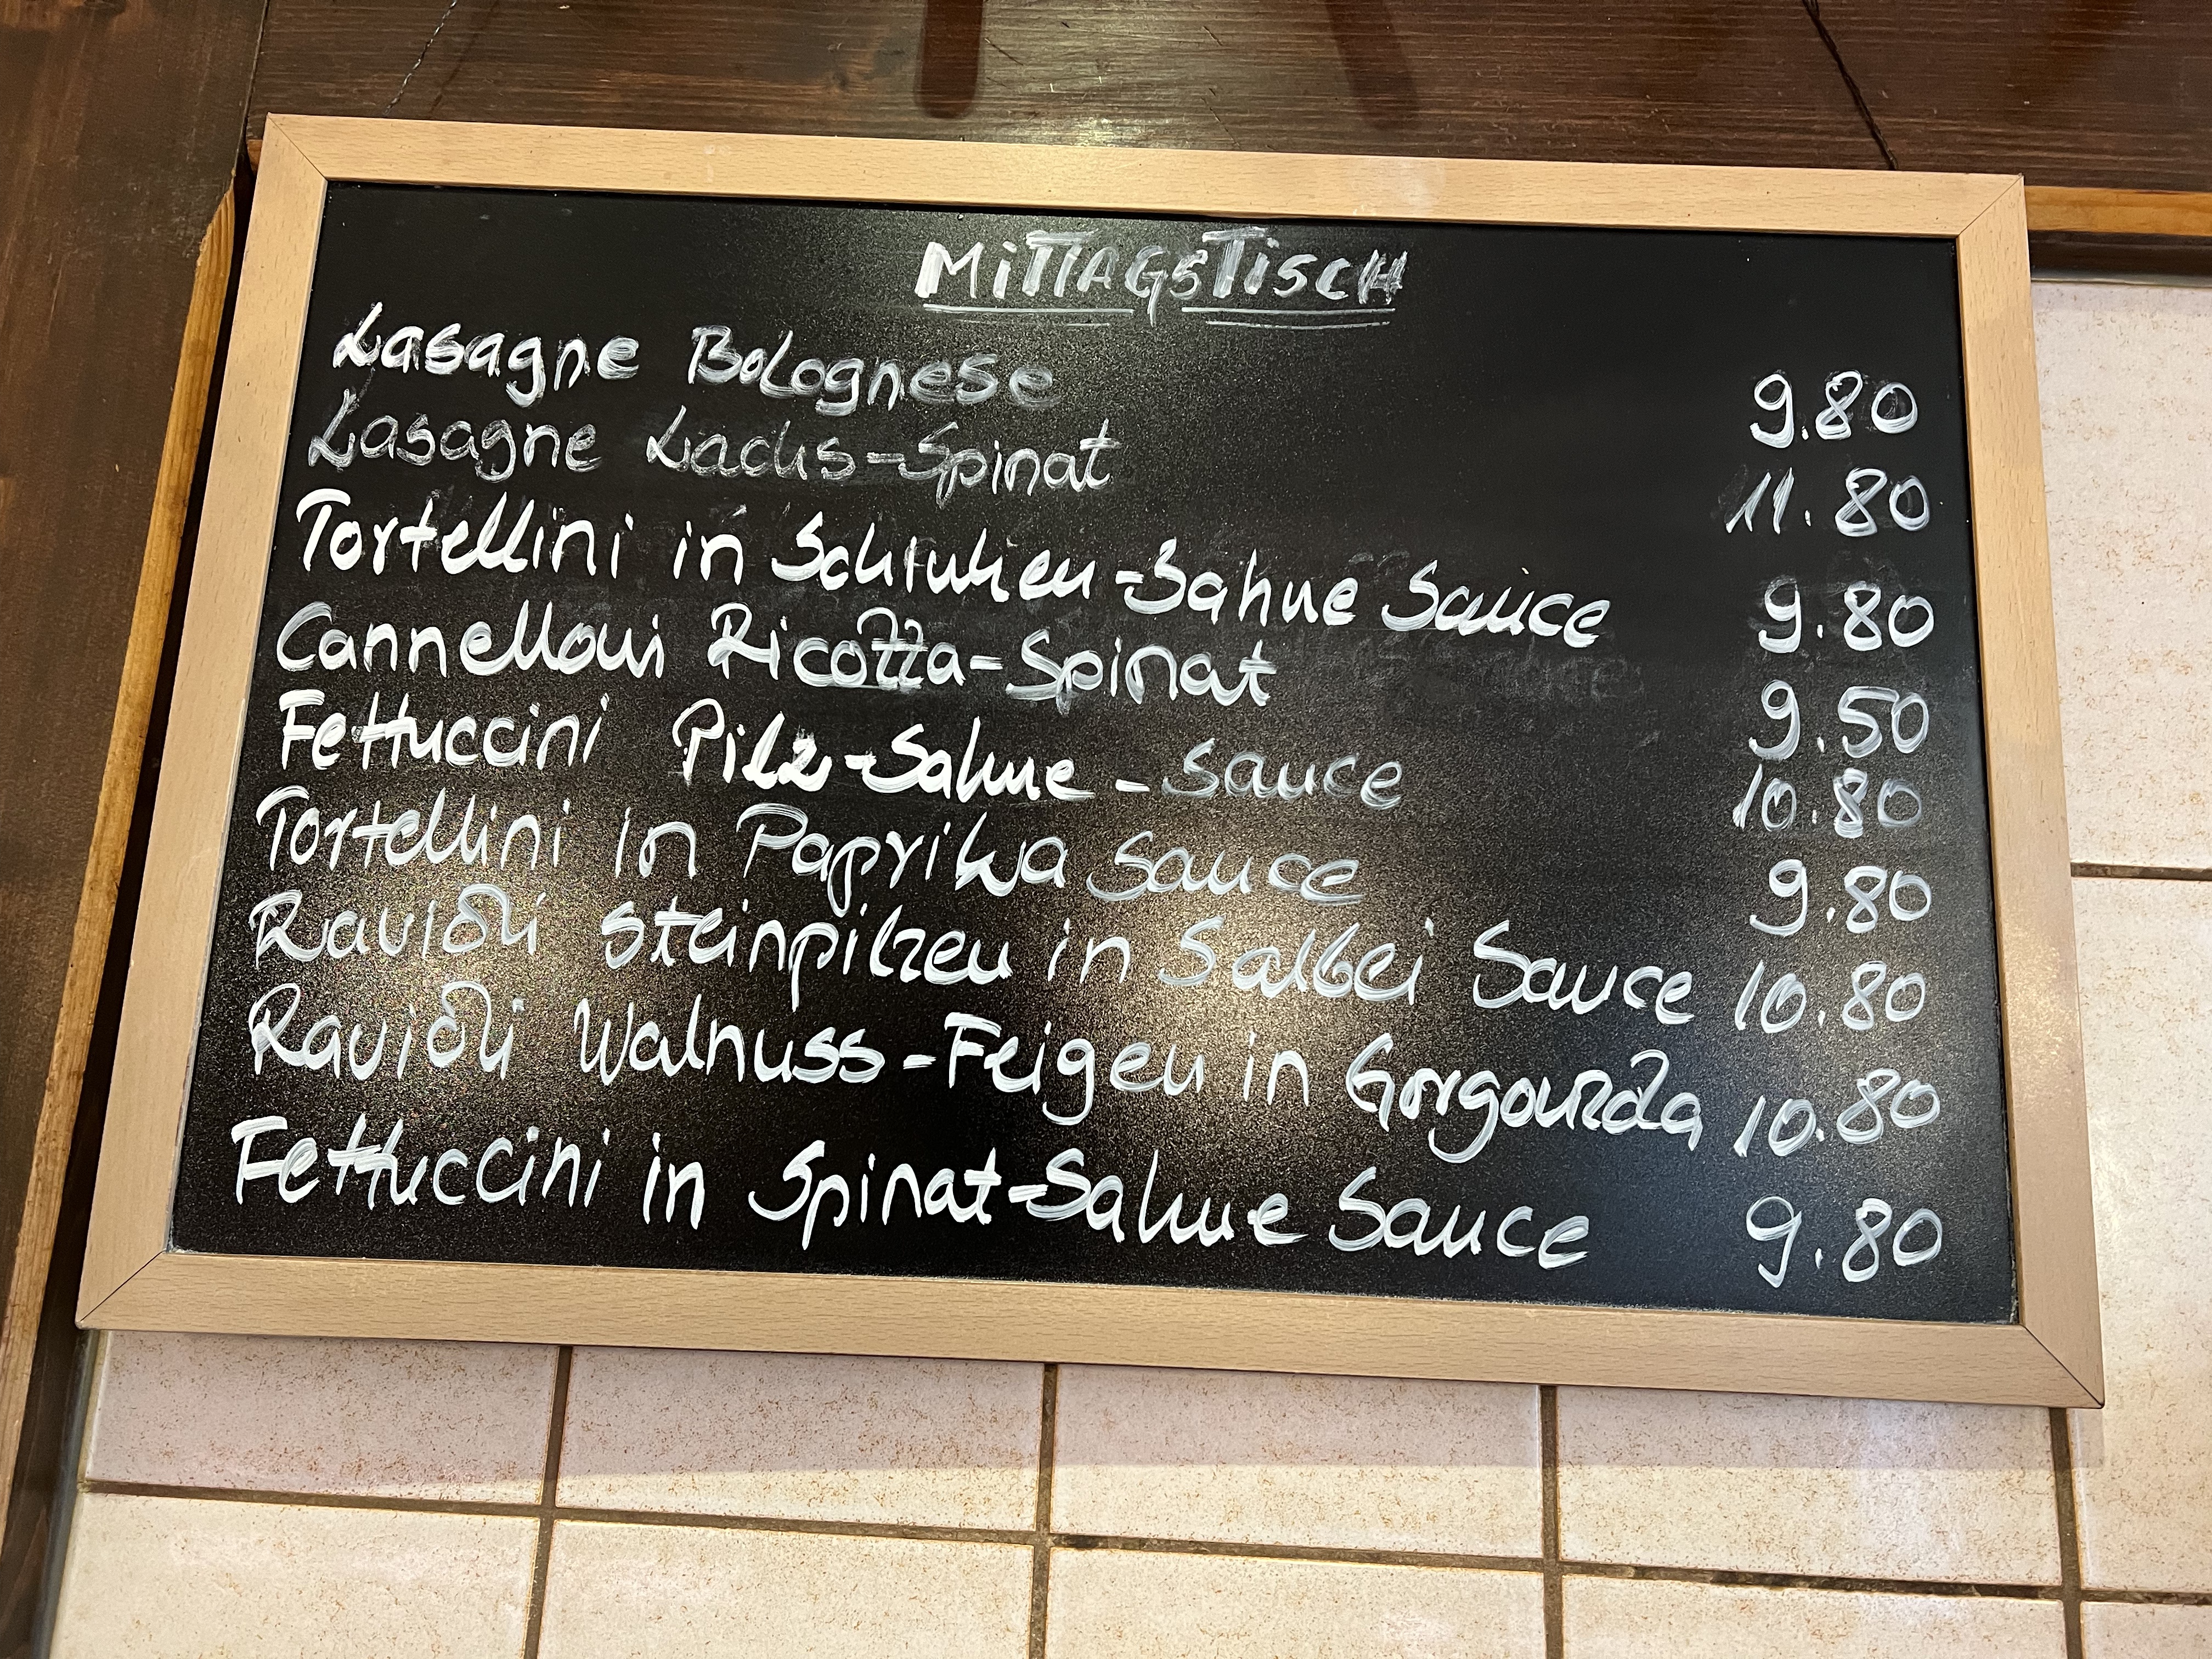 MiTTAGSTiSCH
Lasagne Bolognese 9.80
Lasagne Lachs-Spinat 11.80
Tortellini in Schinken-Sahne Sauce 9.80
Cannelloni Ricotta-Spinat 9.50
Fettuccini Pilz-Sahne-Sauce 10.80
Tortellini in Paprika Sauce 9.80
Ravioli Steinpilzen in Salbei Sauce 10.80
Ravioli Walnuss-Feigen in Gorgonzola 10.80
Fettuccini in Spinat-Sahne Sauce 9.80